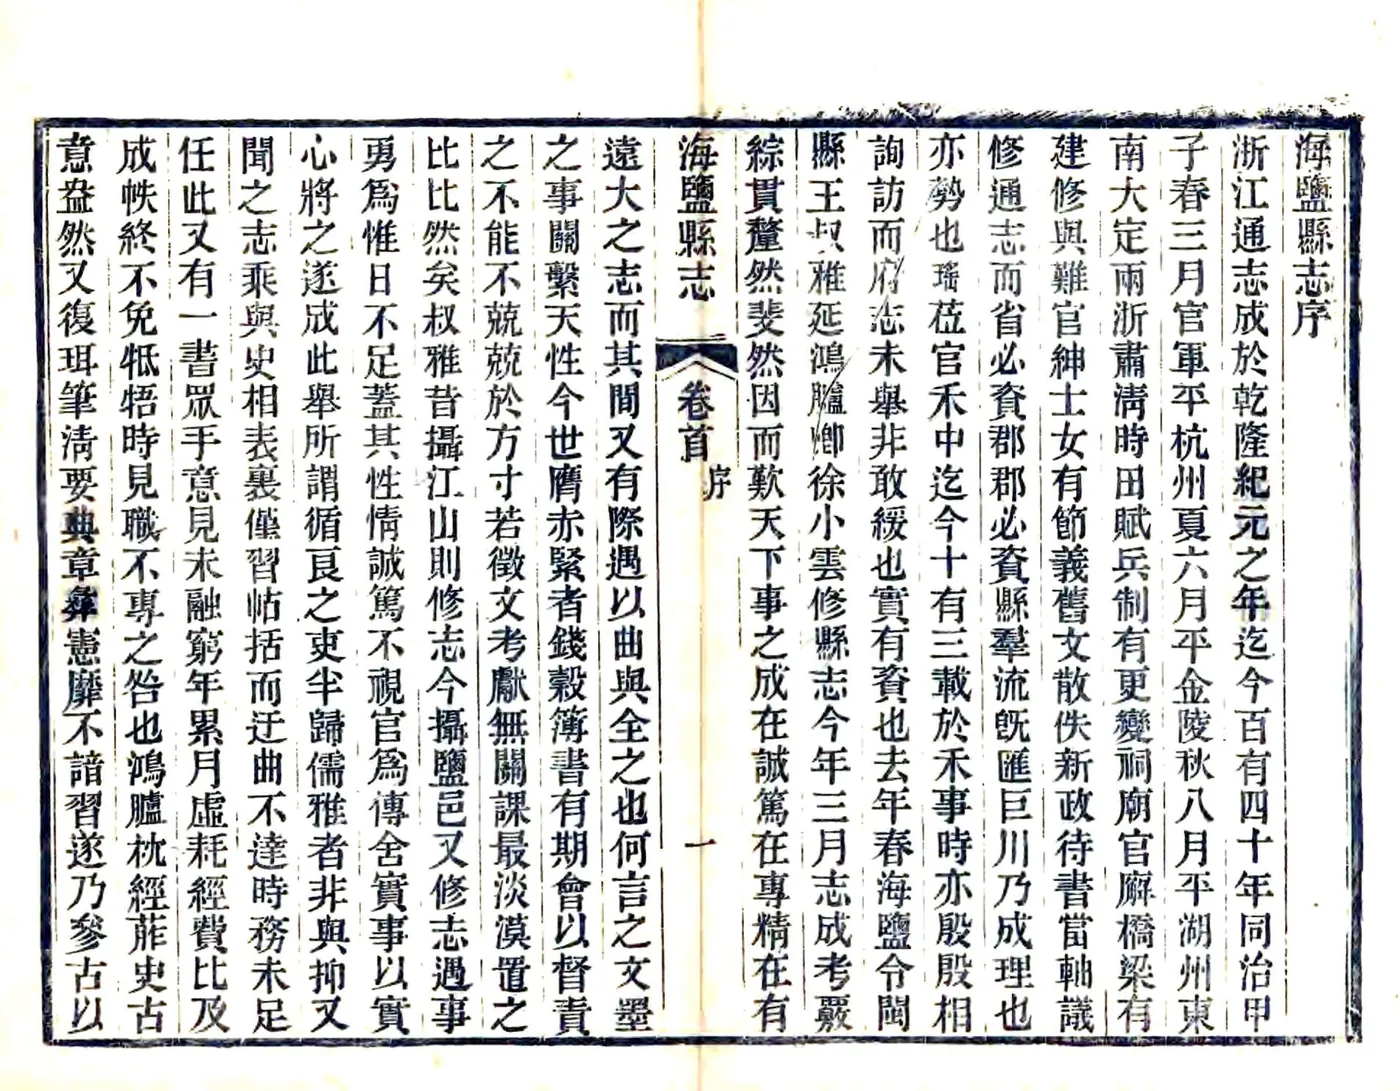 海鹽縣志序
浙江通志成於乾隆紀元之年迄今百有四十年同治甲
子春三月官軍平杭州夏六月平金陵秋八月平湖州東
南大定兩浙肅清時田賦兵制有更變祠廟官廨橋梁有
建修與難官紳士女有節義舊文散佚新政待書當軸議
修通志而省必資郡郡必資縣羣流旣匯巨川乃成理也
亦勢也瑤莅官禾中迄今十有三載於禾事時亦殷殷相
詢訪而府志未舉非敢緩也實有資也去年春海鹽令閩
縣王叔雅延鴻臚卿徐小雲修縣志今年三月志成考覈
綜貫釐然斐然因而歎天下事之成在誠篤在專精在有
海鹽縣志 卷首 序 一
遠大之志而其間又有際遇以曲與全之也何言之文墨
之事關繫天性今世膺赤緊者錢穀簿書有期會以督責
之不能不兢兢於方寸若徵文考獻無關課最淡漠置之
比比然矣叔雅昔攝江山則修志今攝鹽邑又修志遇事
勇爲惟日不足蓋其性情誠篤不視官爲傳舍實事以實
心將之遂成此舉所謂循良之吏半歸儒雅者非與抑又
聞之志乘與史相表裏僅習帖括而迂曲不達時務未足
任此又有一書眾手意見未融窮年累月虛耗經費比及
成帙終不免牴牾時見職不專之咎也鴻臚枕經葄史古
意盎然又復珥筆清要典章彝憲靡不諳習遂乃參古以